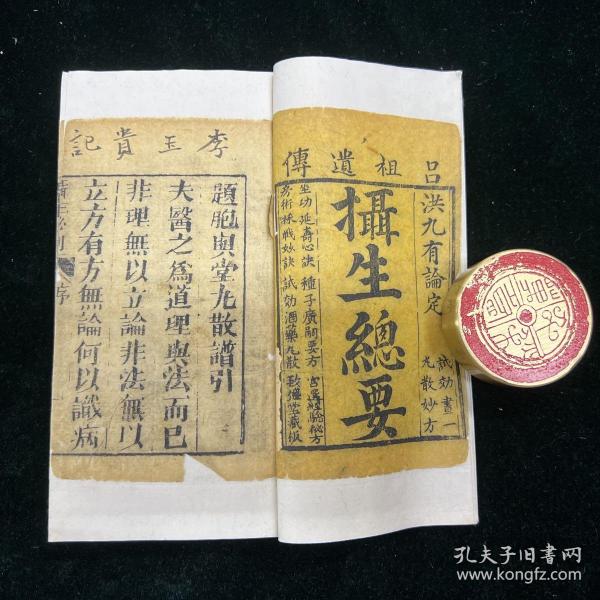 呂祖遺傳
洪九有論定
試効畫一
丸散妙方
攝生總要
坐功延壽心訣 種子廣嗣要方 經驗秘方
房術採戰妙訣 試効酒藥丸散 堂藏板
李玉貴記
題胞與堂丸散譜引
夫醫之爲道理與法而已
非理無以立論非法無以
立方有方無論何以識病
序
孔夫子旧书网
www.kongfz.com